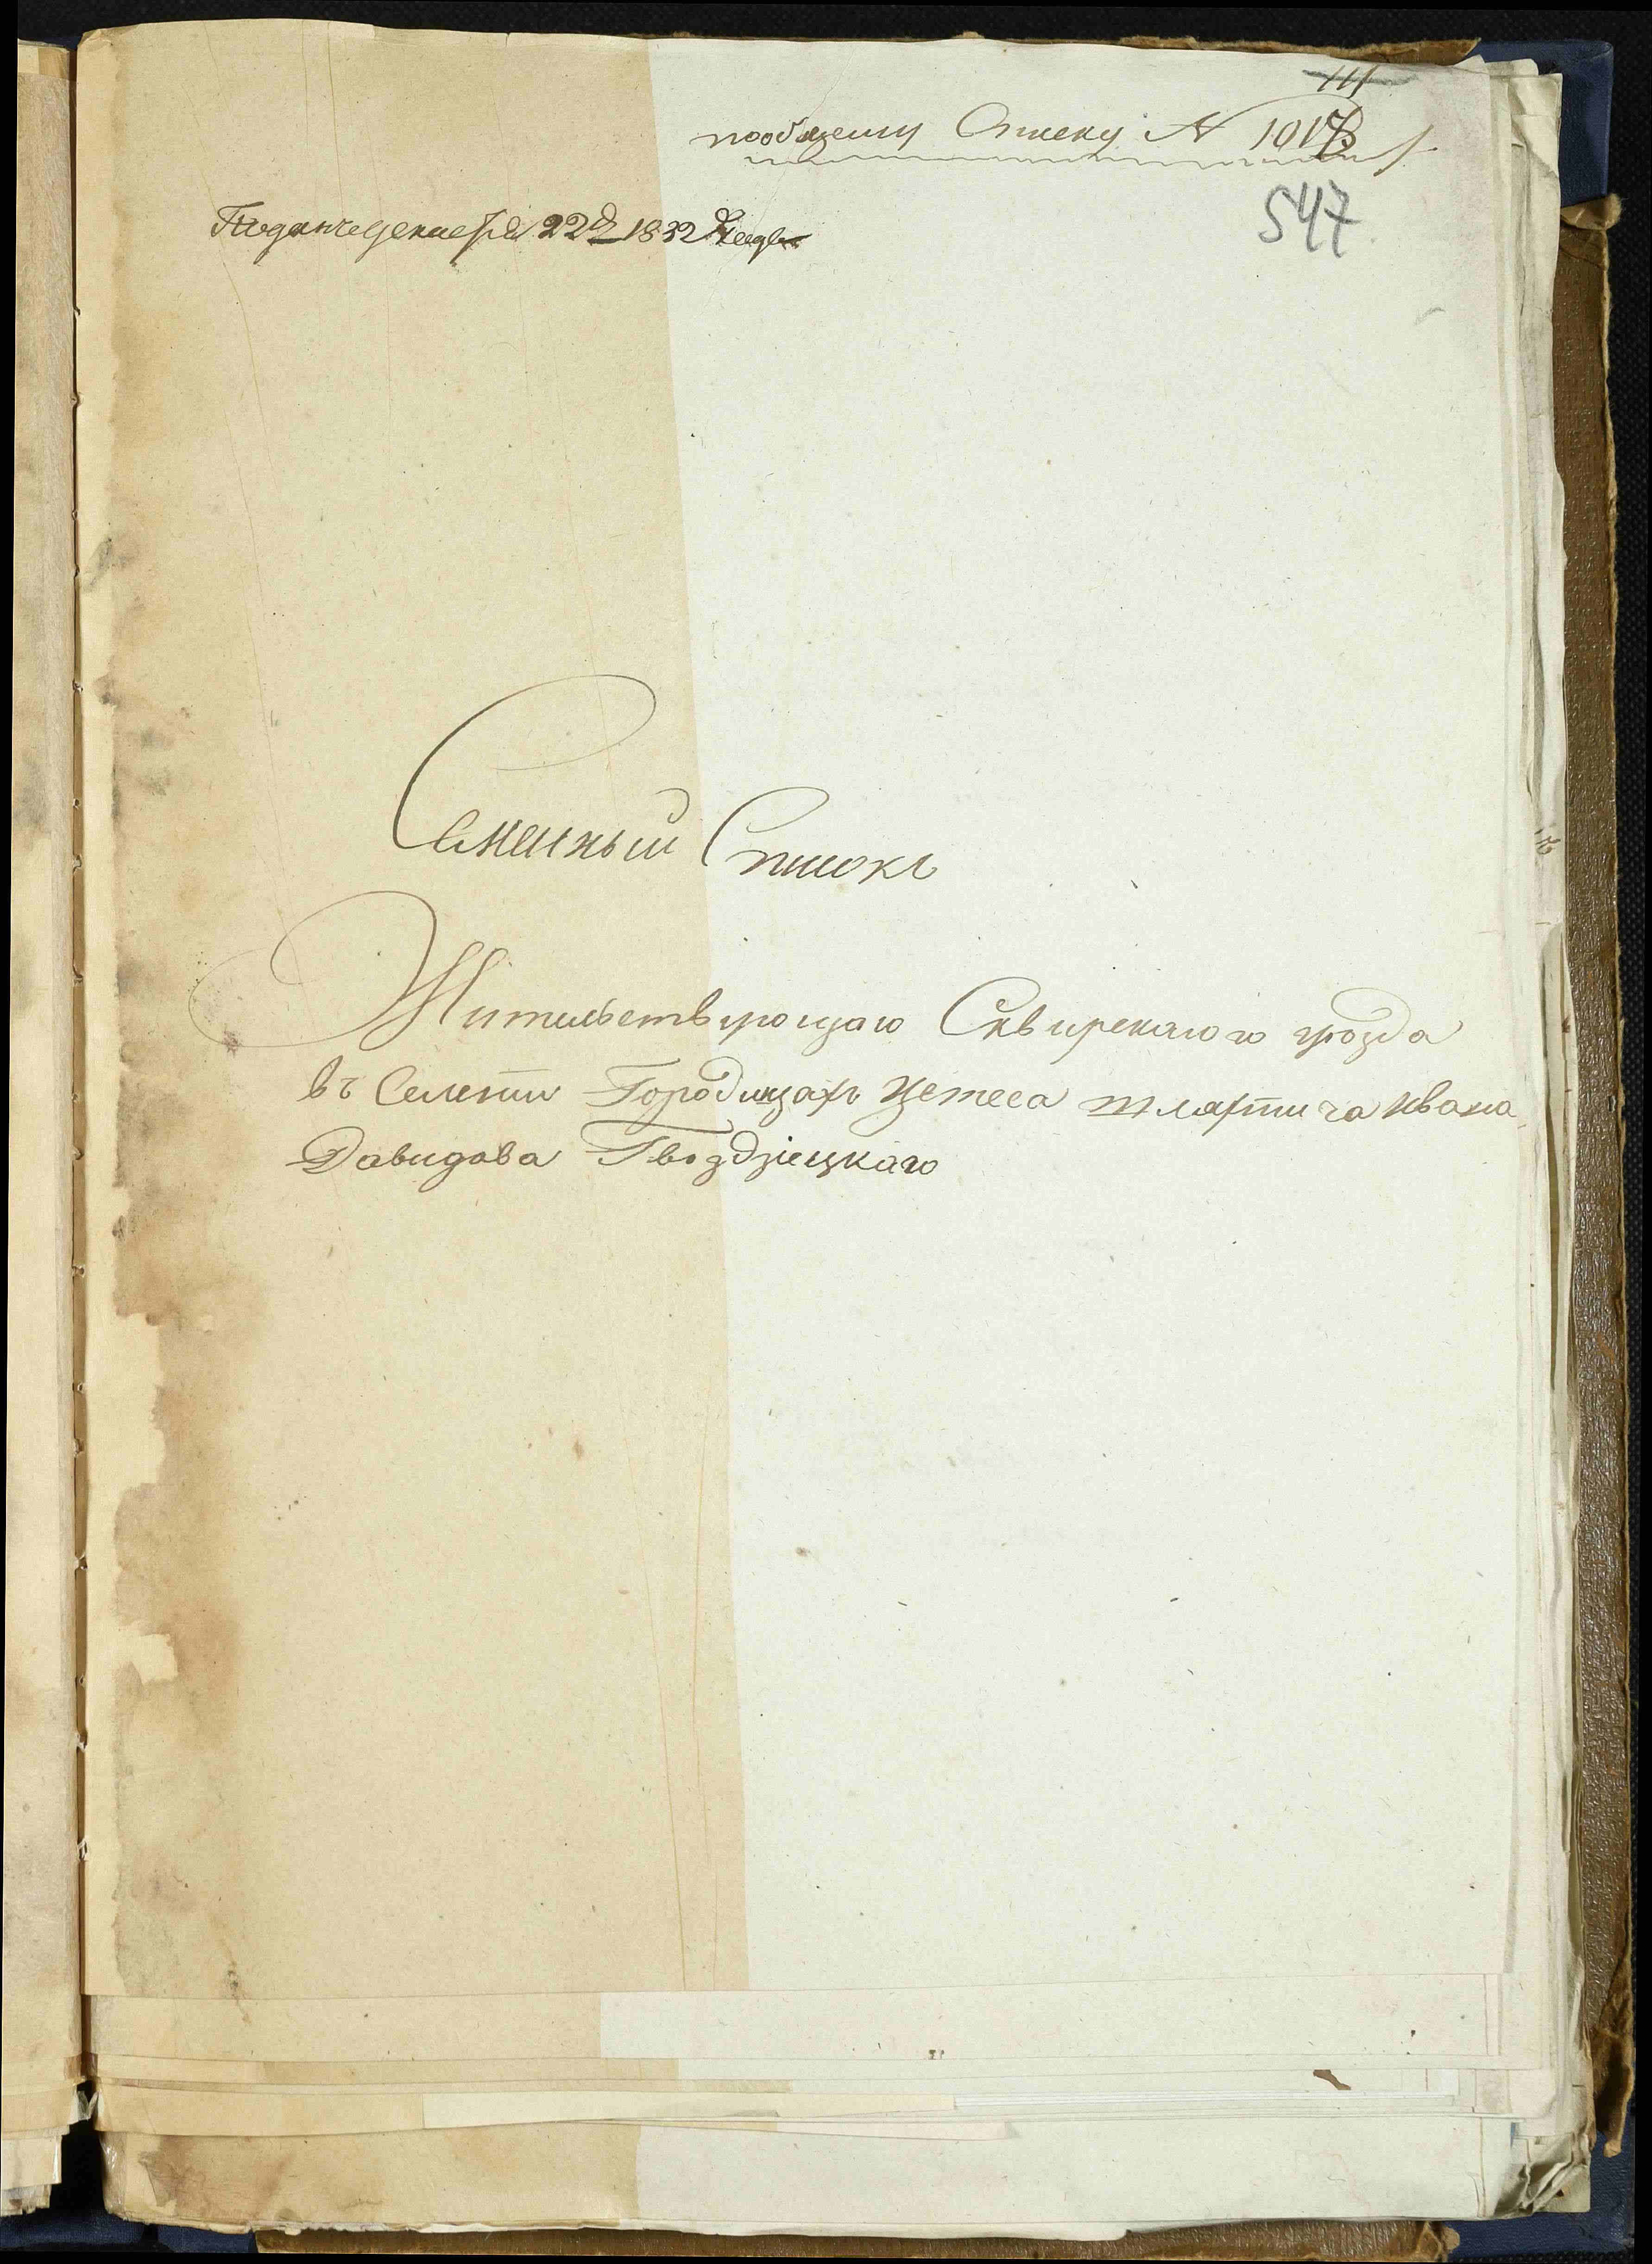 111
по общему Списку № 1017
547
Поданъ декабря 22 д 1832 года
Семенный Списокъ
Жительствующаго Сквирскаго уезда
въ Селении Городищахъ шляхтича Ивана
Давидова Гвоздзіецкаго